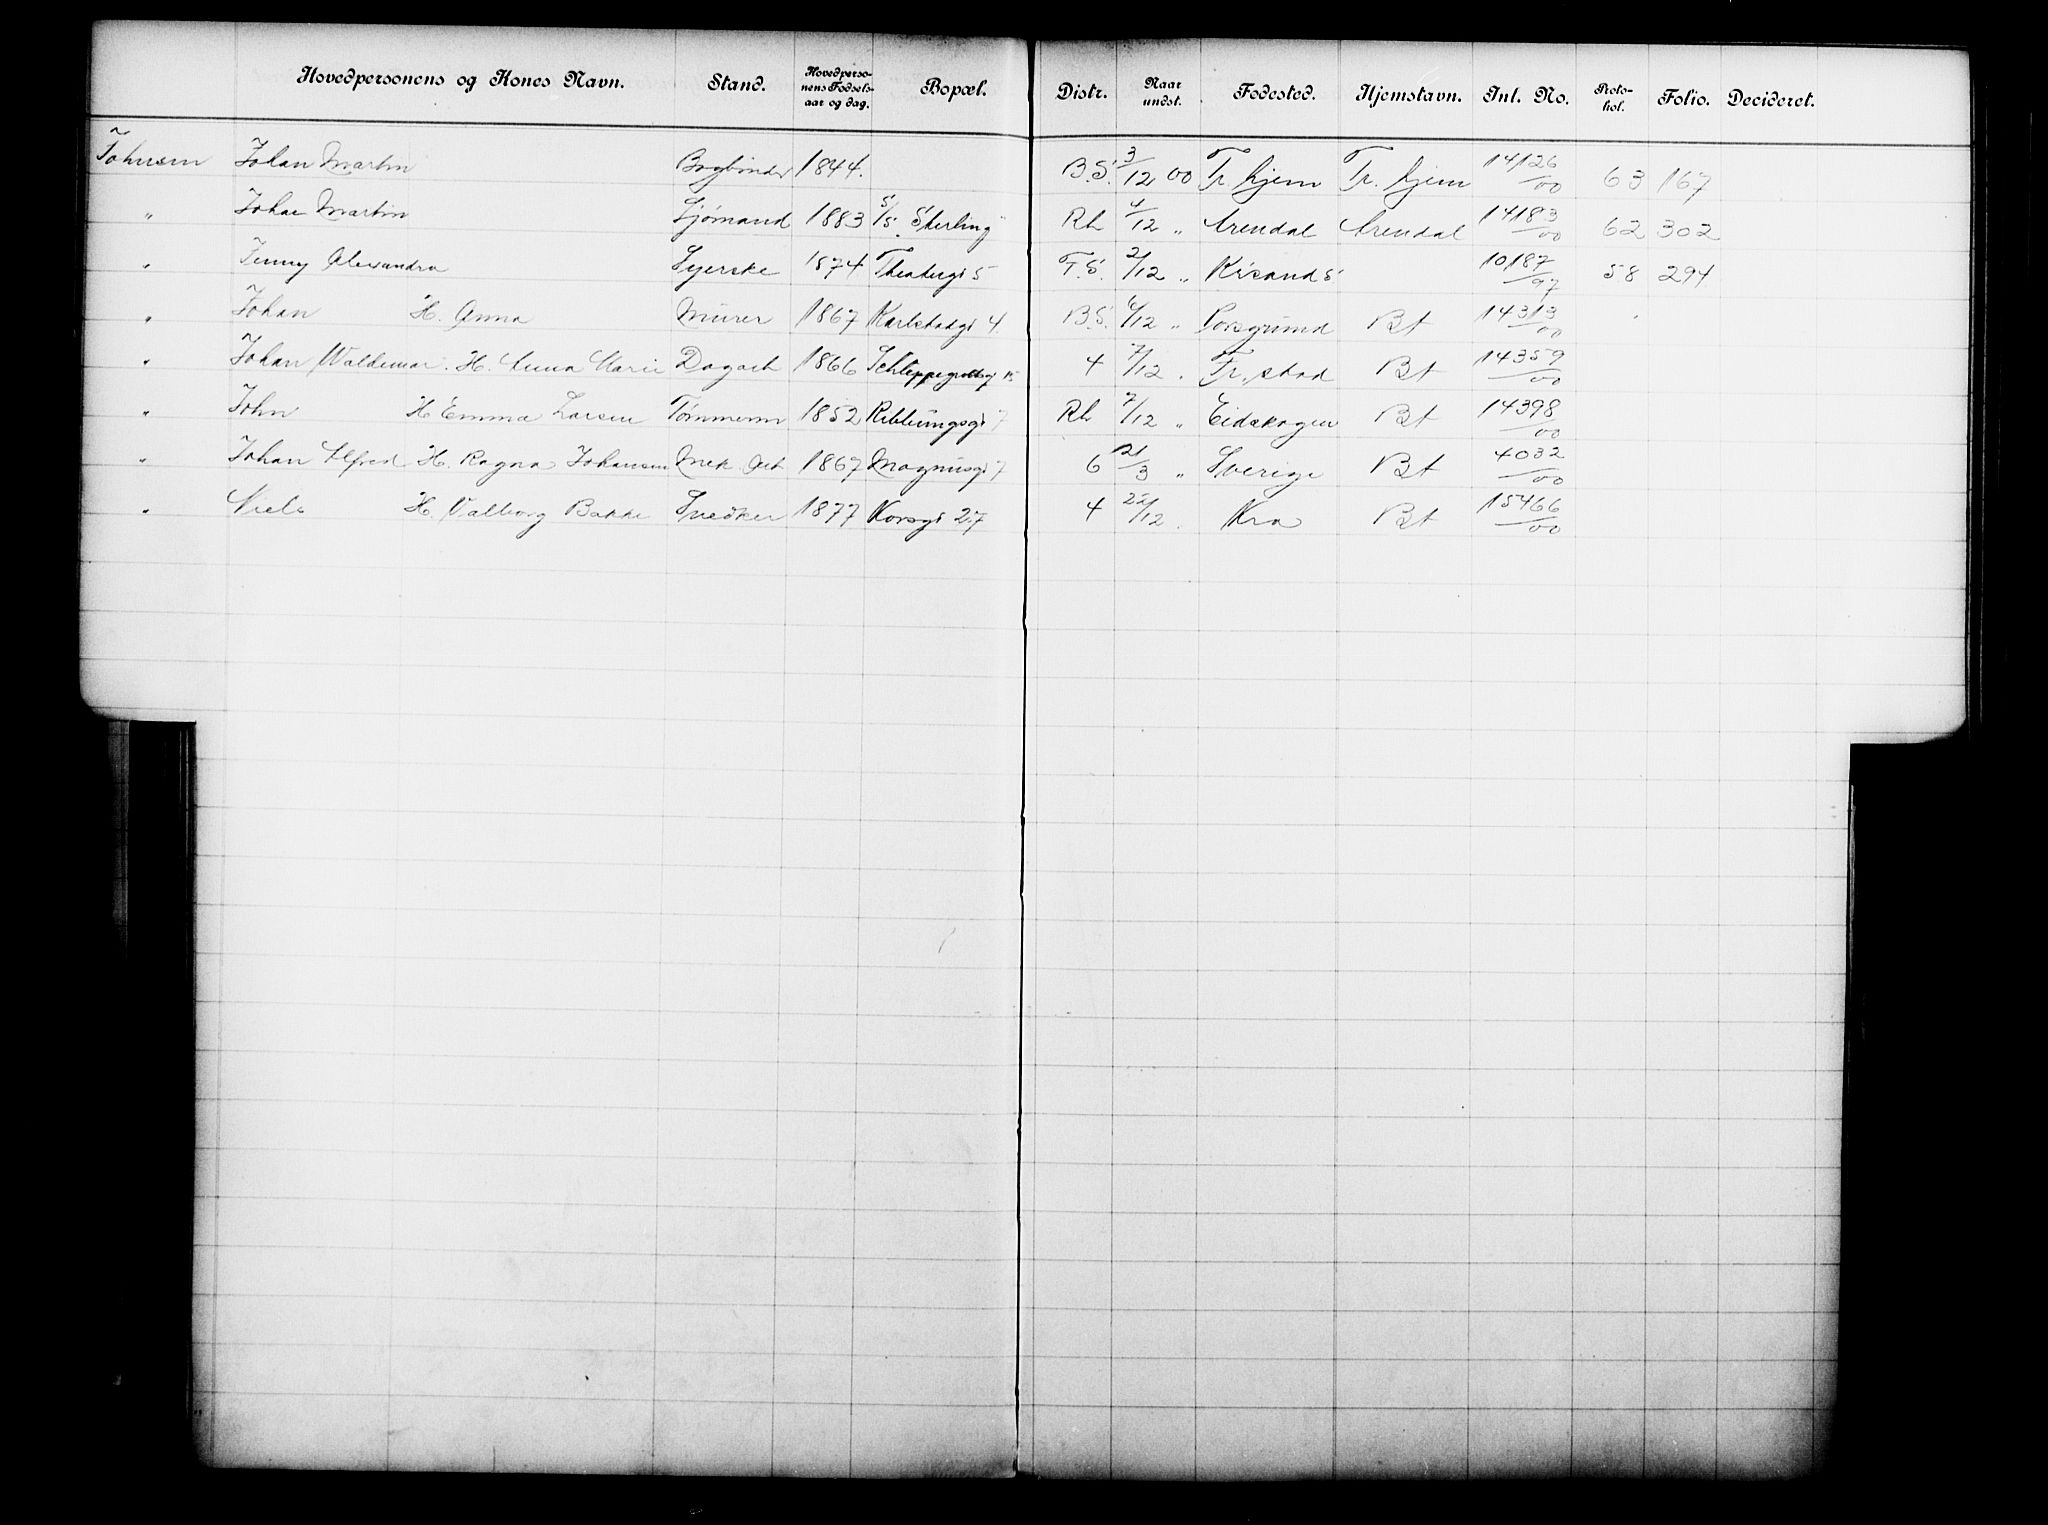 Hovedpersonens og Kones Navn. Stand. Hovedperso-nens Fødsels-aar og dag. Bopæl. Distr. Naar undst. Fødested. Hjemstavn. Inl. No. Proto-kol. Folio. Decideret.
Johnsen Johan Martin Bogbinder 1844. B.S. 3/12 00 Tr.hjem Tr.hjem 14126/00 63 167
" Johan Martin Sjømand 1883 S/S. Sterling Rh 4/12 " Arendal Arendal 14183/00 62 302
" Jenny Alexandra Syerske 1874 Theatergt 5 F.S. 2/12 " Kr.sand S 10187/97 58 294
" Johan H. Anna Murer 1867 Karlstadgt 4 B.S. 6/12 " Porsgrund Bt 14313/00
" Johan Waldemar. H. Anna Marie Dagarb 1866 Schleppegrellsgt 15 4 7/12 . Fr.stad Bt 14359/00
" John H Emma Larsen Tømmerm 1852 Ribbungsgt 7 Rh 7/12 " Eidskogen Bt 14398/00
" Johan Alfred H. Ragna Johansen Mek. Arb 1867 Magnusgt 7 6 21/3 " Sverige Bt 4032/00
" Niels H. Valborg Bakke Snedker 1877 Korsgt 27 4 22/12 . Kra Bt 15466/00